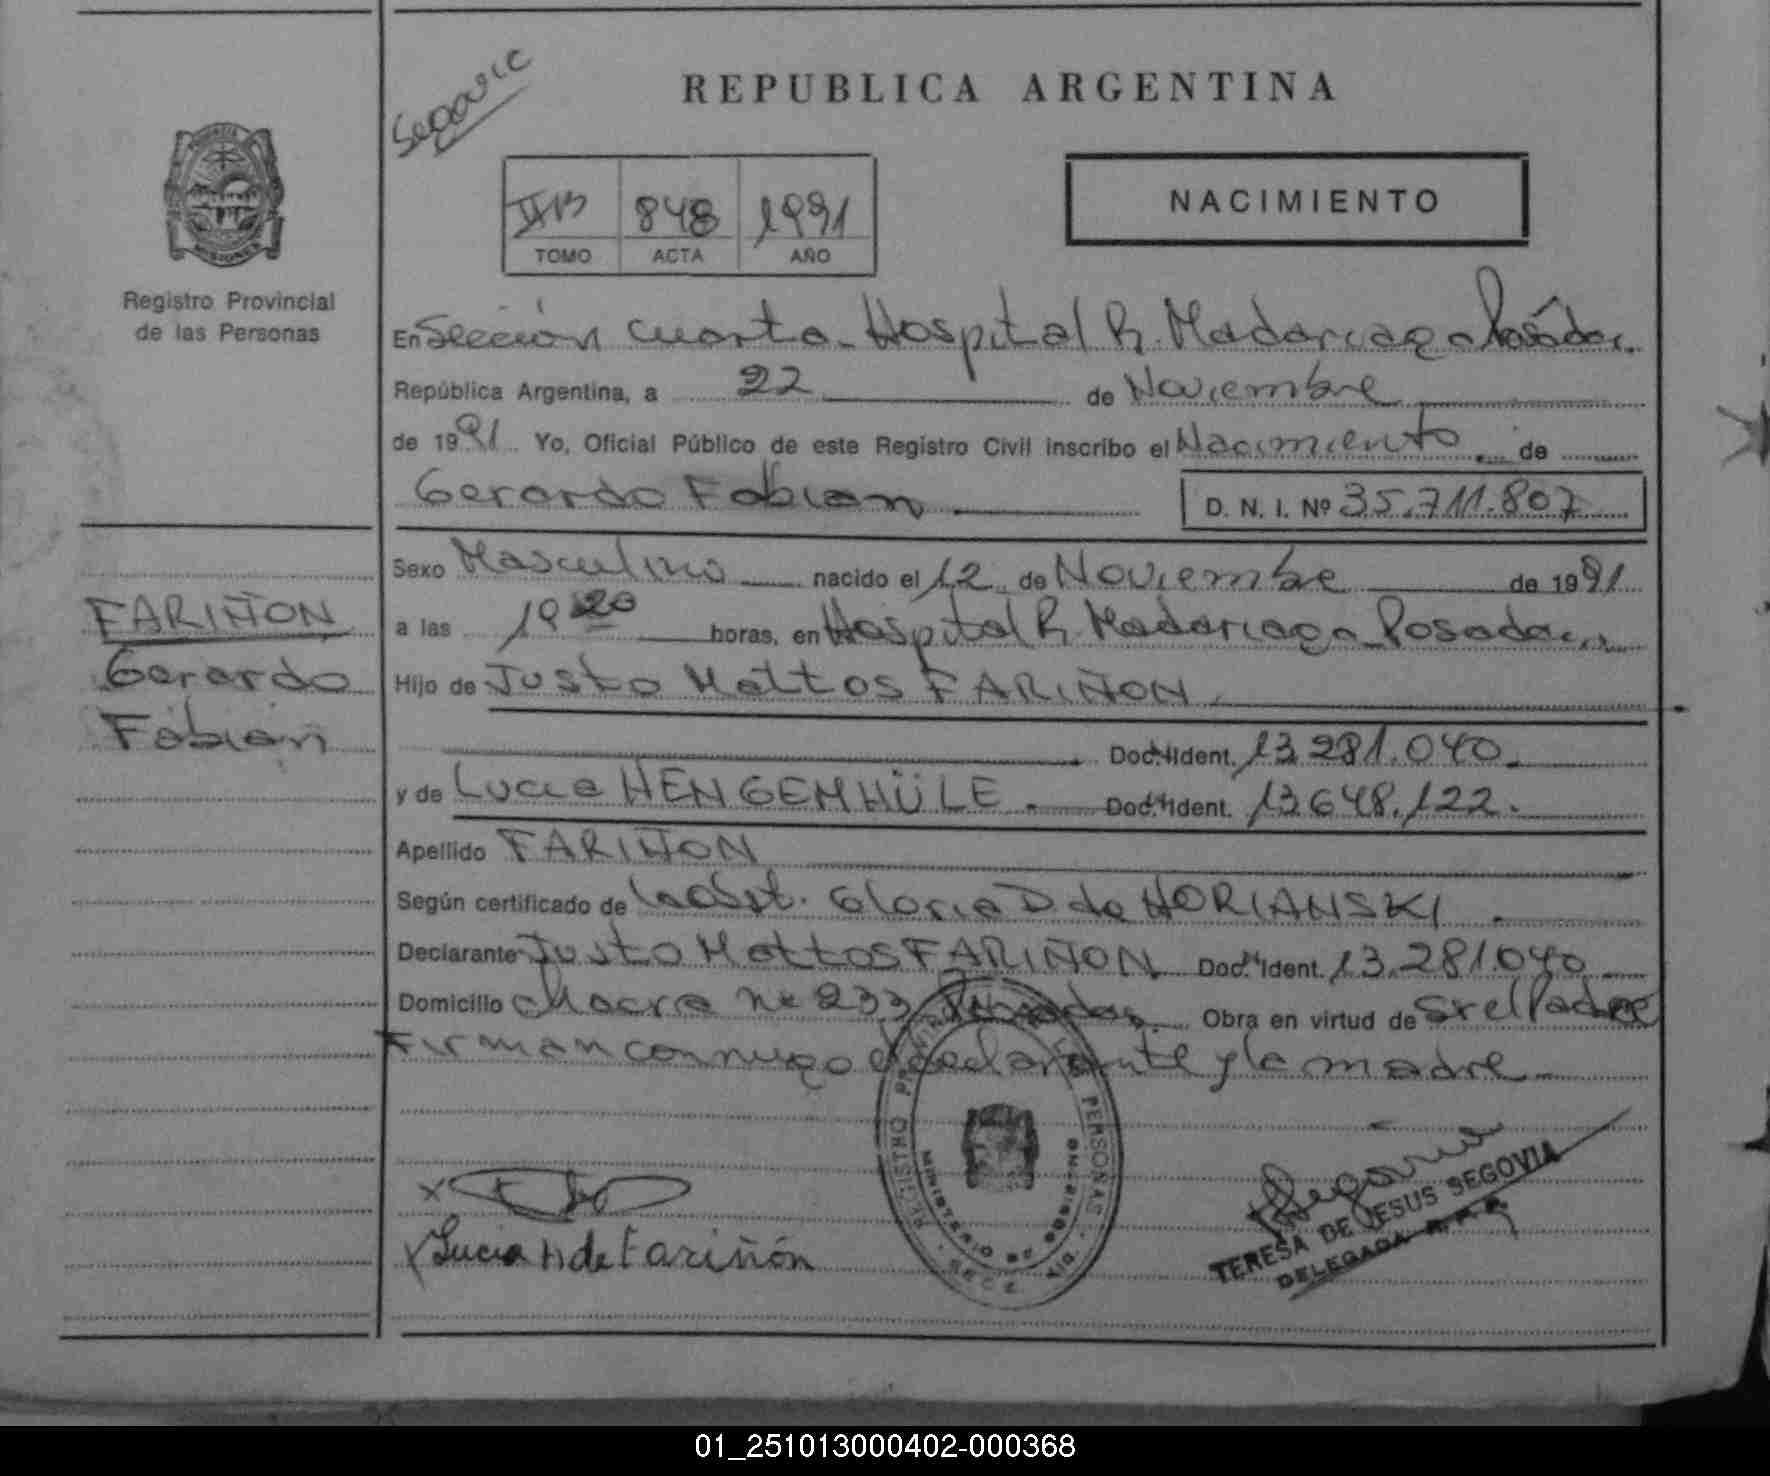 Segovia
REPUBLICA ARGENTINA
IIB 848 1991
TOMO ACTA AÑO
NACIMIENTO
Registro Provincial
de las Personas
En Sección cuarta - Hospital R. Madariaga Posadas.
República Argentina, a 22 de Noviembre
de 1991 Yo, Oficial Público de este Registro Civil inscribo el Nacimiento de
Gerardo Fabian
D. N. I. Nº 35.711.807
Sexo Masculino nacido el 12 de Noviembre de 1991
a las 19 20 horas, en Hospital R. Madariaga Posadas
Hijo de Justo Mattos FARIÑON
Doc. Ident. 13.281.040.
y de Lucia HENGEMHÜLE. Doc. Ident. 13.648.122.
Apellido FARIÑON
Según certificado de la Obst. Gloria D. de HORIANSKI
Declarante Justo Mattos FARIÑON Doc. Ident. 13.281.040
Domicilio Chacra Nº 233 Posadas. Obra en virtud de ser el Padre
Firman conmigo el declarante y la madre
FARIÑON
Gerardo
Fabian
x
x Lucia H de Fariñón
REGISTRO PERSONAS
MINISTERIO DE GOBIERNO
Segovia
TERESA DE JESUS SEGOVIA
DELEGADA
01_251013000402-000368